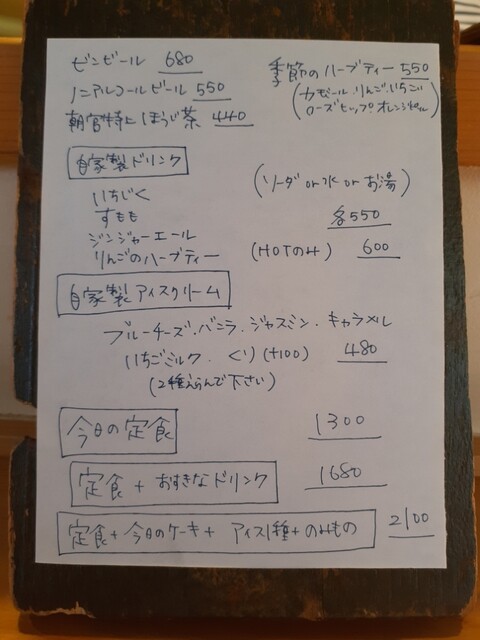 ビンビール 680
ノンアルコールビール 550
朝宮特上ほうじ茶 440
季節のハーブティー 550
(カモミール りんご いちご
ローズヒップ オレンジピール)
自家製ドリンク
(ソーダ or 水 or お湯)
いちじく
すもも
各550
ジンジャーエール
りんごのハーブティー (HOTのみ) 600
自家製アイスクリーム
ブルーチーズ・バニラ・ジャスミン・キャラメル
いちごミルク・くり(+100) 480
(2種えらんで下さい)
今日の定食 1300
定食 + おすきなドリンク 1680
定食 + 今日のケーキ + アイス1種 + のみもの 2100